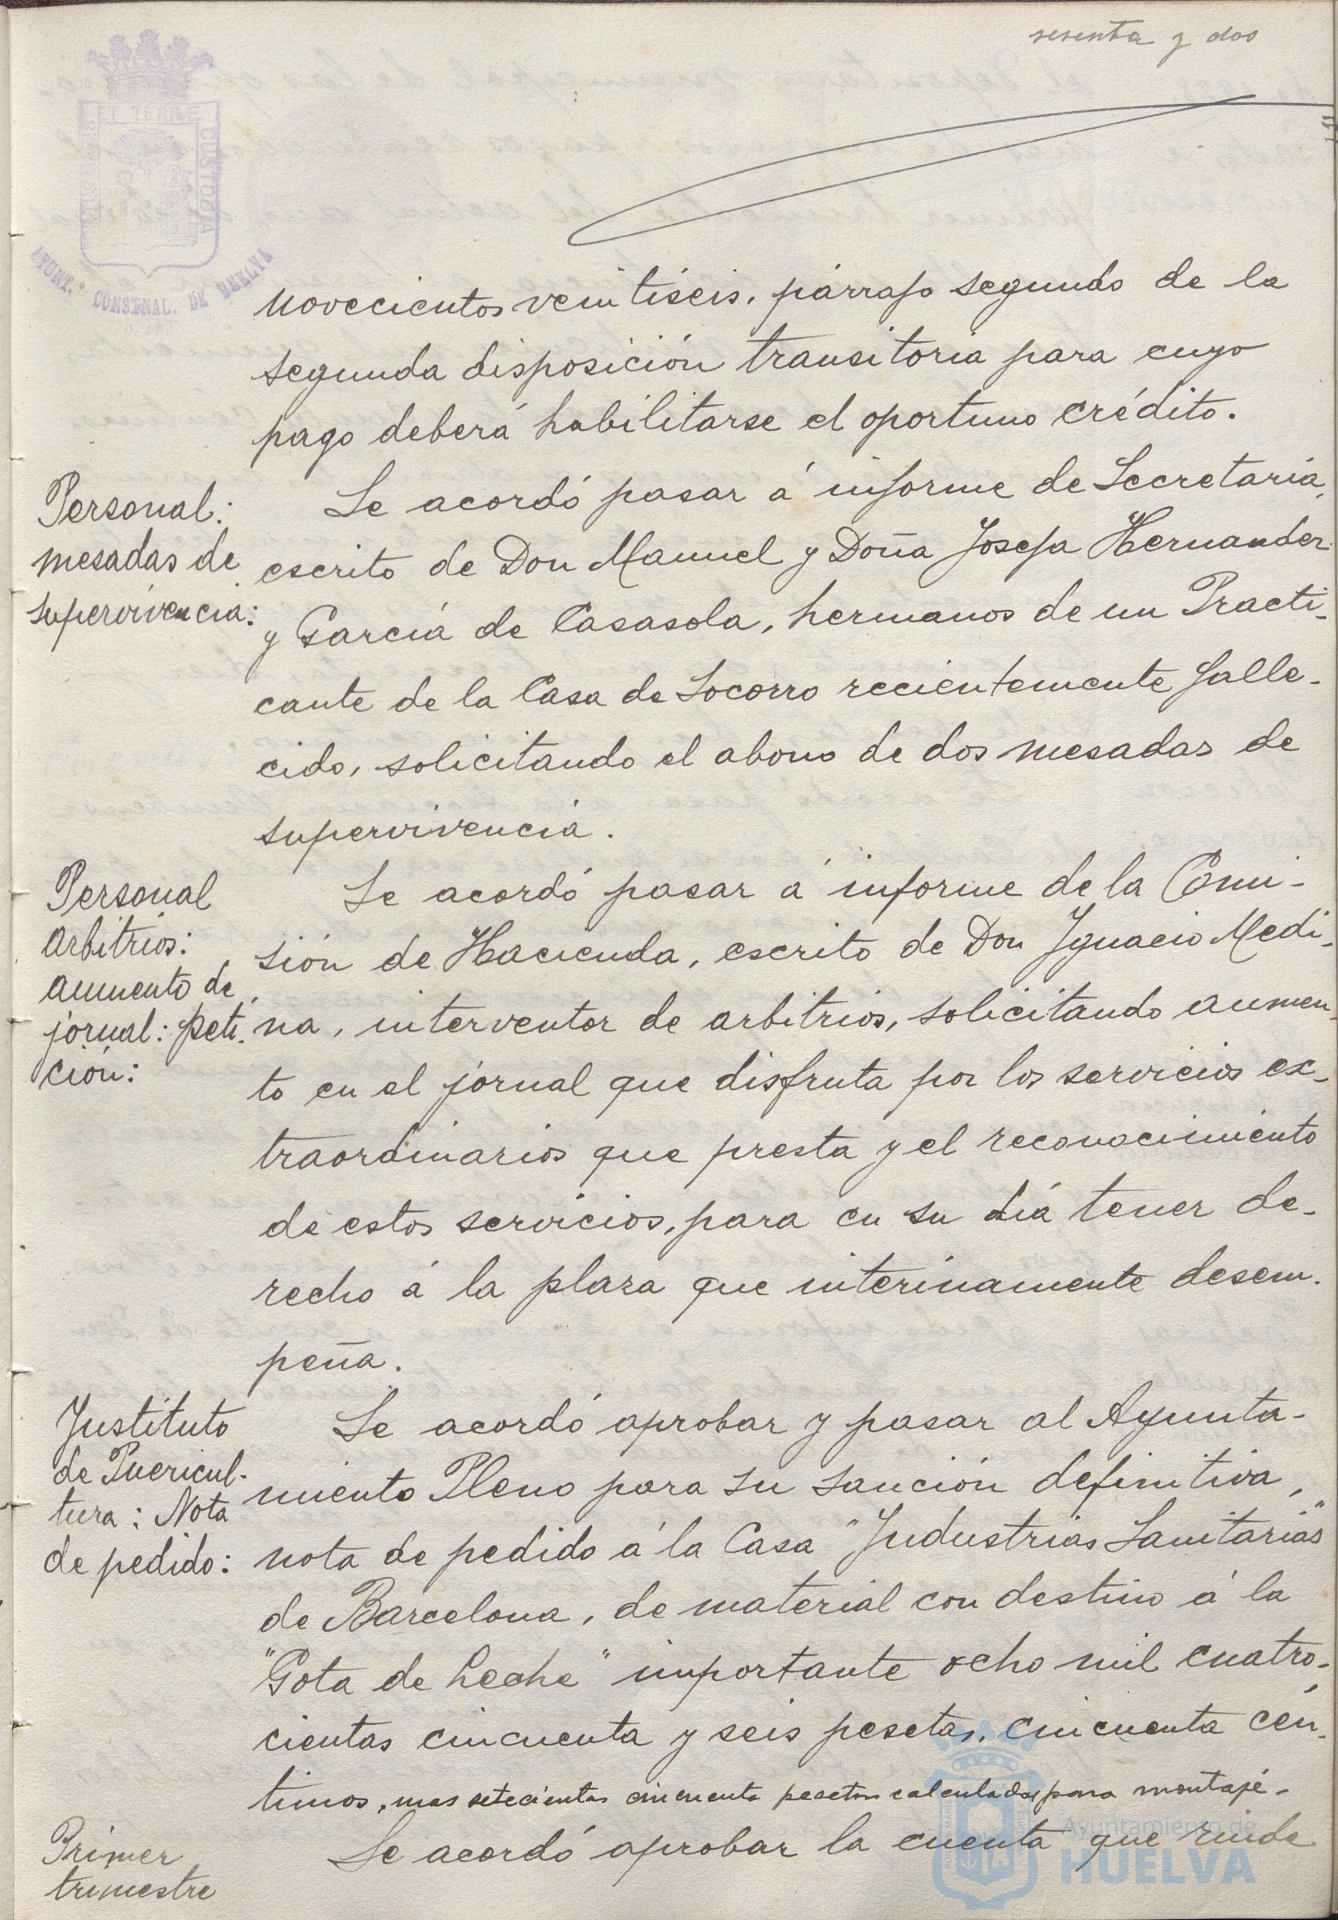 sesenta y dos
EL TERRAE
CUSTODIA
AYUNT.º CONSTNAL. DE HUELVA
novecientos veintiseis, párrafo segundo de la
segunda disposición transitoria para cuyo
pago deberá habilitarse el oportuno crédito.
Personal:
mesadas de
supervivencia:
Se acordó pasar á informe de Secretaría,
escrito de Don Manuel y Doña Josefa Hernandez
y García de Casasola, hermanos de un Practi-
cante de la Casa de Socorro recientemente falle-
cido, solicitando el abono de dos mesadas de
supervivencia.
Personal
arbitrios:
aumento de
jornal: peti-
ción:
Se acordó pasar á informe de la Comi-
sión de Hacienda, escrito de Don Ignacio Medi-
na, interventor de arbitrios, solicitando aumen-
to en el jornal que disfruta por los servicios ex-
traordinarios que presta y el reconocimiento
de estos servicios, para en su día tener de-
recho á la plaza que interinamente desem-
peña.
Instituto
de Puericul-
tura: Nota
de pedido:
Se acordó aprobar y pasar al Ayunta-
miento Pleno para su sanción definitiva,
nota de pedido á la Casa "Industrias Sanitarias"
de Barcelona, de material con destino á la
"Gota de Leche" importante ocho mil cuatro-
cientas cincuenta y seis pesetas, cincuenta cén-
timos, mas setecientas cincuenta pesetas calculadas para montaje.
Primer
trimestre
Se acordó aprobar la cuenta que rinde
Ayuntamiento de
HUELVA